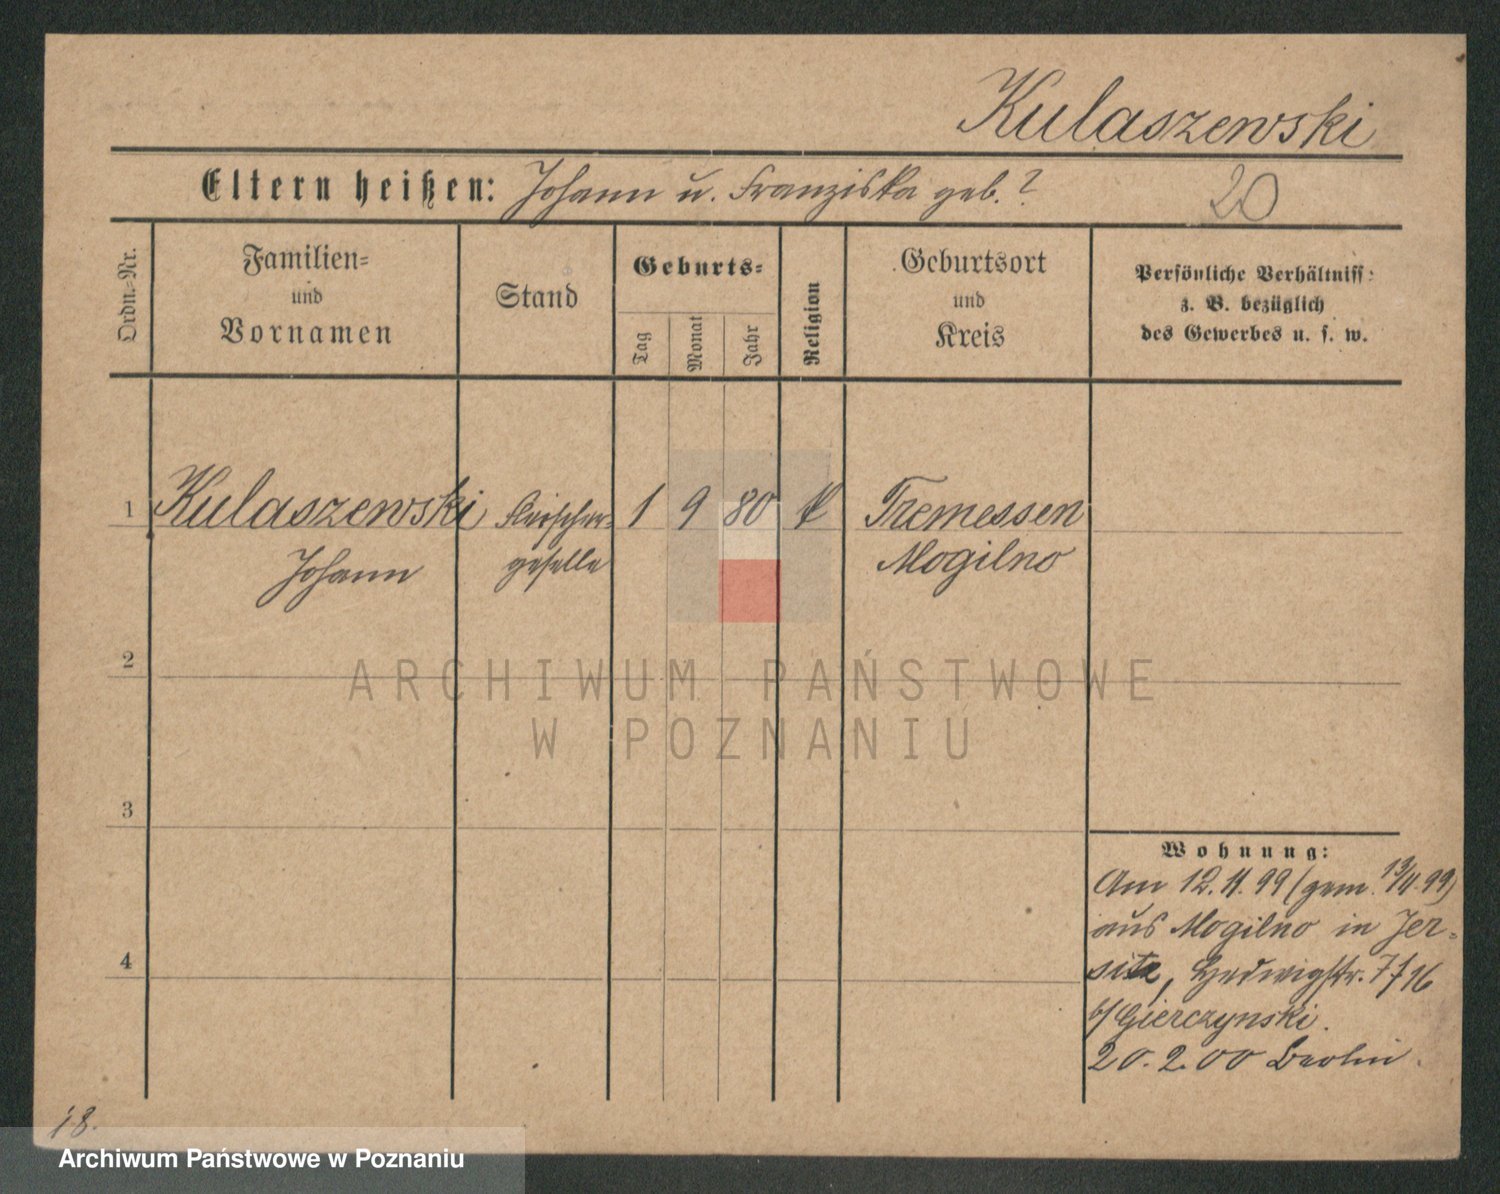 Kulaszewski
Eltern heißen: Johann u. Franziska geb. ?
20
Ordn.-Nr.
Familien-
und
Vornamen
Stand
Geburts-
Tag
Monat
Jahr
Religion
Geburtsort
und
Kreis
Persönliche Verhältniss:
z. B. bezüglich
des Gewerbes u. s. w.
1 Kulaszewski Fleischer- 1 9 80 k Tremessen
Johann geselle Mogilno
2
ARCHIWUM PAŃSTWOWE
W POZNANIU
3
4
Wohnung:
Am 12.4.99 (gem. 13/4.99)
aus Mogilno in Jer-
sitz, Hedwigstr. 16
b/ Gierczynski.
20.2.00 Berlin.
18.
Archiwum Państwowe w Poznaniu